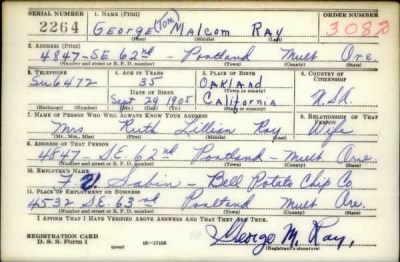 SERIAL NUMBER 1. NAME (Print) ORDER NUMBER
2264 GEORGE (TOM) Malcom RAY 3082
(First) (Middle) (Last)
2. ADDRESS (Print)
4847-SE 62nd - Portland Mult Ore.
(Number and street or R. F. D. number) (Town) (County) (State)
3. TELEPHONE 4. AGE IN YEARS 5. PLACE OF BIRTH 6. COUNTRY OF CITIZENSHIP
Su 6472 35 OAKLAND
DATE OF BIRTH (Town)
Sept 29 1905 California U.S.A.
(Exchange) (Number) (Mo.) (Day) (Yr.) (State or country)
7. NAME OF PERSON WHO WILL ALWAYS KNOW YOUR ADDRESS 8. RELATIONSHIP OF THAT PERSON
Mrs Ruth Lillian Ray Wife
(Mr., Mrs., Miss) (First) (Middle) (Last)
9. ADDRESS OF THAT PERSON
4847 SE 62nd Portland - Mult Ore
(Number and street or R. F. D. number) (Town) (County) (State)
10. EMPLOYER'S NAME
Sabin - Bell Potato Chip Co
11. PLACE OF EMPLOYMENT OR BUSINESS
4532 S.E. 63rd Portland Mult Ore
(Number and street or R. F. D. number) (Town) (County) (State)
I AFFIRM THAT I HAVE VERIFIED ABOVE ANSWERS AND THAT THEY ARE TRUE.
REGISTRATION CARD
D. S. S. Form 1 (over) 16-17105 George M. Ray.
(Registrant's signature)